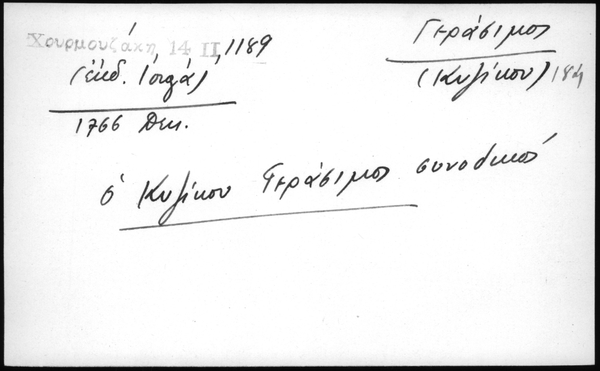 Χουρμουζάκη 14 II, 1189
(ἐκδ. Ἰόργα)
1766 Δεκ.
Γεράσιμος
(Κυζίκου) 184
ὁ Κυζίκου Γεράσιμος συνοδικός